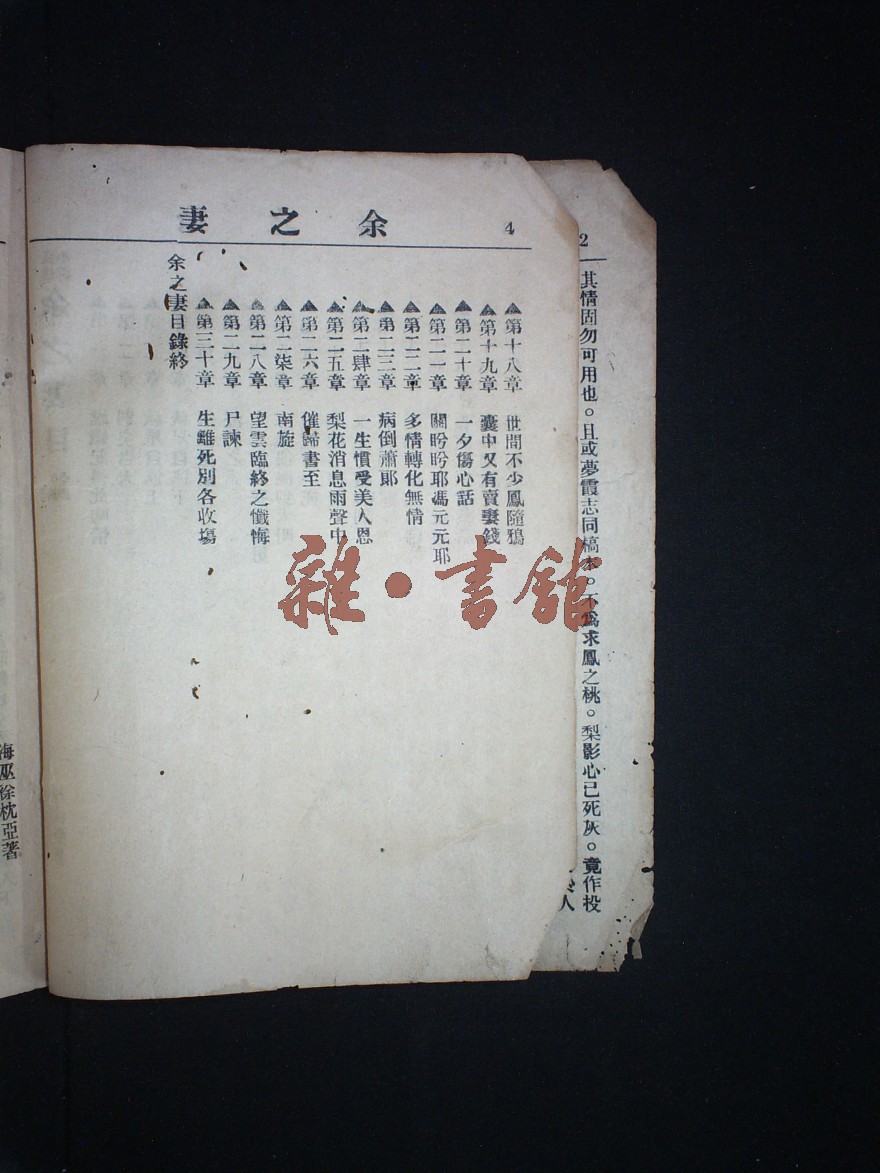 余之妻
4
▲第十八章　世間不少鳳隨鴉
▲第十九章　囊中又有賣妻錢
▲第二十章　一夕傷心話
▲第二一章　關盼盼耶馮元元耶
▲第二二章　多情轉化無情
▲第二三章　病倒蕭郞
▲第二肆章　一生慣受美人恩
▲第二五章　梨花消息雨聲中
▲第二六章　催歸書至
▲第二柒章　南旋
▲第二八章　望雲臨終之懺悔
▲第二九章　尸諫
▲第三十章　生離死別各收塲
余之妻目錄終
2
其情固勿可用也。且或夢霞志同槁木。不爲求鳳之桃。梨影心已死灰。竟作投
人
海巫徐枕亞著
雜·書館